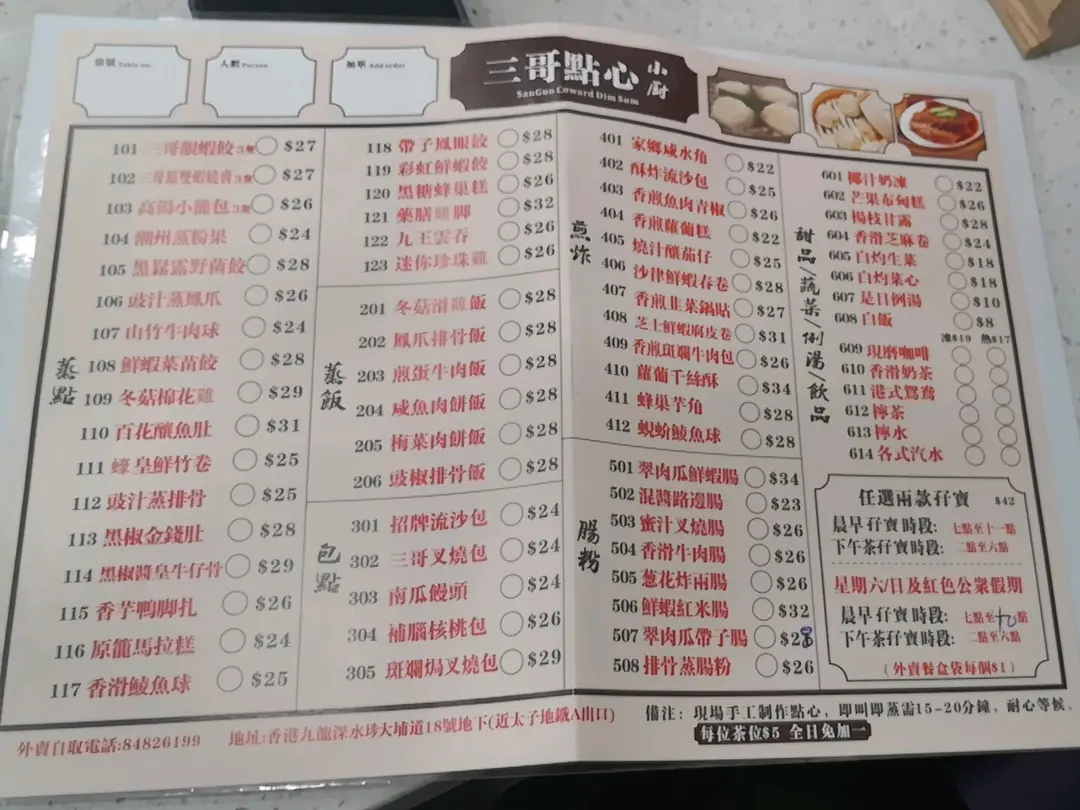 壹號 Table no
人數 Person
加單 Add order
三哥點心 小廚
SanGuo Coward Dim Sum
蒸點
101 三哥靚蝦餃3隻 $27
102 三哥原隻蝦燒賣3隻 $27
103 高湯小籠包3隻 $26
104 潮州蒸粉果 $24
105 黑鬆露野菌餃 $28
106 豉汁蒸鳳爪 $26
107 山竹牛肉球 $24
108 鮮蝦菜苗餃 $28
109 冬菇棉花雞 $29
110 百花釀魚肚 $31
111 蠔皇鮮竹卷 $25
112 豉汁蒸排骨 $25
113 黑椒金錢肚 $28
114 黑椒醬皇牛仔骨 $29
115 香芋鴨脚扎 $26
116 原籠馬拉糕 $24
117 香滑鯪魚球 $25
118 帶子鳳眼餃 $28
119 彩虹鮮蝦餃 $28
120 黑糖蜂巢糕 $26
121 藥膳雞脚 $32
122 九王雲吞 $26
123 迷你珍珠雞 $26
蒸飯
201 冬菇滑雞飯 $28
202 鳳爪排骨飯 $28
203 煎蛋牛肉飯 $28
204 咸魚肉餅飯 $28
205 梅菜肉餅飯 $28
206 豉椒排骨飯 $28
包點
301 招牌流沙包 $24
302 三哥叉燒包 $24
303 南瓜饅頭 $24
304 補腦核桃包 $26
305 斑斕焗叉燒包 $29
煎炸
401 家鄉咸水角 $22
402 酥炸流沙包 $25
403 香煎魚肉青椒 $26
404 香煎蘿蔔糕 $22
405 燒汁釀茄仔 $25
406 沙律鮮蝦春卷 $28
407 香煎韭菜鍋貼 $27
408 芝士鮮蝦腐皮卷 $31
409 香煎斑斕牛肉包 $26
410 蘿蔔千絲酥 $34
411 蜂巢芋角 $28
412 蜆蚧鯪魚球 $28
腸粉
501 翠肉瓜鮮蝦腸 $34
502 混醬路邊腸 $23
503 蜜汁叉燒腸 $26
504 香滑牛肉腸 $26
505 葱花炸兩腸 $26
506 鮮蝦紅米腸 $32
507 翠肉瓜帶子腸 $28
508 排骨蒸腸粉 $26
甜品/蔬菜/例湯/飲品
601 椰汁奶凍 $22
602 芒果布甸糕 $26
603 楊枝甘露 $28
604 香滑芝麻卷 $24
605 白灼生菜 $18
606 白灼菜心 $18
607 是日例湯 $10
608 白飯 $8
凍$19 熱$17
609 現磨咖啡
610 香滑奶茶
611 港式鴛鴦
612 檸茶
613 檸水
614 各式汽水
任選兩款孖寶 $42
晨早孖寶時段: 七點至十一點
下午茶孖寶時段: 二點至六點
星期六/日及紅色公衆假期
晨早孖寶時段: 七點至十點
下午茶孖寶時段: 二點至六點
(外賣餐盒袋每個$1)
外賣自取電話:84826199 地址:香港九龍深水埗大埔道18號地下(近太子地鐵A出口)
備注: 現場手工制作點心, 即叫即蒸需15-20分鐘, 耐心等候。
每位茶位$5 全日免加一